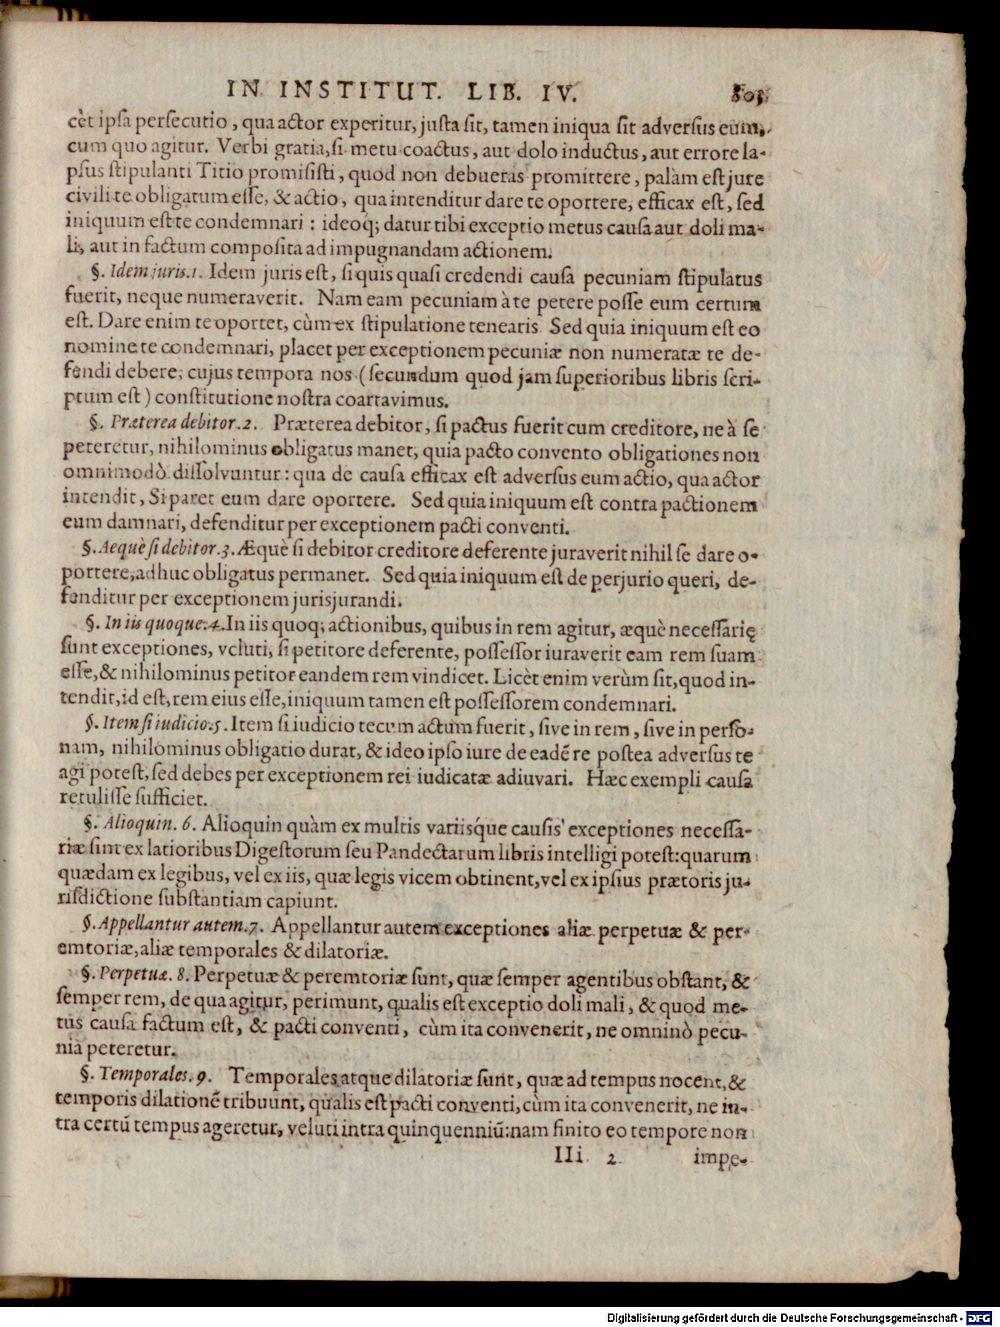 IN INSTITUT. LIB. IV. 803
cèt ipsa persecutio, qua actor experitur, justa sit, tamen iniqua sit adversus eum,
cum quo agitur. Verbi gratia, si metu coactus, aut dolo inductus, aut errore la-
psus stipulanti Titio promisisti, quod non debueras promittere, palàm est jure
civili te obligatum esse, & actio, qua intenditur dare te oportere, efficax est, sed
iniquum est te condemnari: ideoq; datur tibi exceptio metus causa aut doli ma-
li, aut in factum composita ad impugnandam actionem.
§. Idem juris. 1. Idem juris est, si quis quasi credendi causa pecuniam stipulatus
fuerit, neque numeraverit. Nam eam pecuniam à te petere posse eum certum
est. Dare enim te oportet, cùm ex stipulatione tenearis Sed quia iniquum est eo
nomine te condemnari, placet per exceptionem pecuniæ non numeratæ te de-
fendi debere, cujus tempora nos (secundum quod jam superioribus libris scri-
ptum est) constitutione nostra coartavimus.
§. Præterea debitor. 2. Præterea debitor, si pactus fuerit cum creditore, ne à se
peteretur, nihilominus obligatus manet, quia pacto convento obligationes non
omnimodò dissolvuntur: qua de causa efficax est adversus eum actio, qua actor
intendit, Si paret eum dare oportere. Sed quia iniquum est contra pactionem
eum damnari, defenditur per exceptionem pacti conventi.
§. Aequè si debitor. 3. Æquè si debitor creditore deferente juraverit nihil se dare o-
portere, adhuc obligatus permanet. Sed quia iniquum est de perjurio queri, de-
fenditur per exceptionem jurisjurandi.
§. In iis quoque. 4. In iis quoq; actionibus, quibus in rem agitur, æquè necessarię
sunt exceptiones, veluti, si petitore deferente, possessor iuraverit eam rem suam
esse, & nihilominus petitor eandem rem vindicet. Licèt enim verùm sit, quod in-
tendit, id est, rem eius esse, iniquum tamen est possessorem condemnari.
§. Item si iudicio. 5. Item si iudicio tecum actum fuerit, sive in rem, sive in perso-
nam, nihilominus obligatio durat, & ideo ipso iure de eadē re postea adversus te
agi potest, sed debes per exceptionem rei iudicatæ adiuvari. Hæc exempli causa
retulisse sufficiet.
§. Alioquin. 6. Alioquin quàm ex multis variisq́ue causis exceptiones necessa-
riæ sint ex latioribus Digestorum seu Pandectarum libris intelligi potest: quarum
quædam ex legibus, vel ex iis, quæ legis vicem obtinent, vel ex ipsius prætoris ju-
risdictione substantiam capiunt.
§. Appellantur autem. 7. Appellantur autem exceptiones aliæ perpetuæ & per-
emtoriæ, aliæ temporales & dilatoriæ.
§. Perpetuæ. 8. Perpetuæ & peremtoriæ sunt, quæ semper agentibus obstant, &
semper rem, de qua agitur, perimunt, qualis est exceptio doli mali, & quod me-
tus causa factum est, & pacti conventi, cùm ita convenerit, ne omninò pecu-
nia peteretur.
§. Temporales. 9. Temporales atque dilatoriæ sunt, quæ ad tempus nocent, &
temporis dilationē tribuunt, qualis est pacti conventi, cùm ita convenerit, ne in-
tra certū tempus ageretur, veluti intra quinquenniū: nam finito eo tempore non
IIi 2 impe-
Digitalisierung gefördert durch die Deutsche Forschungsgemeinschaft - DFG